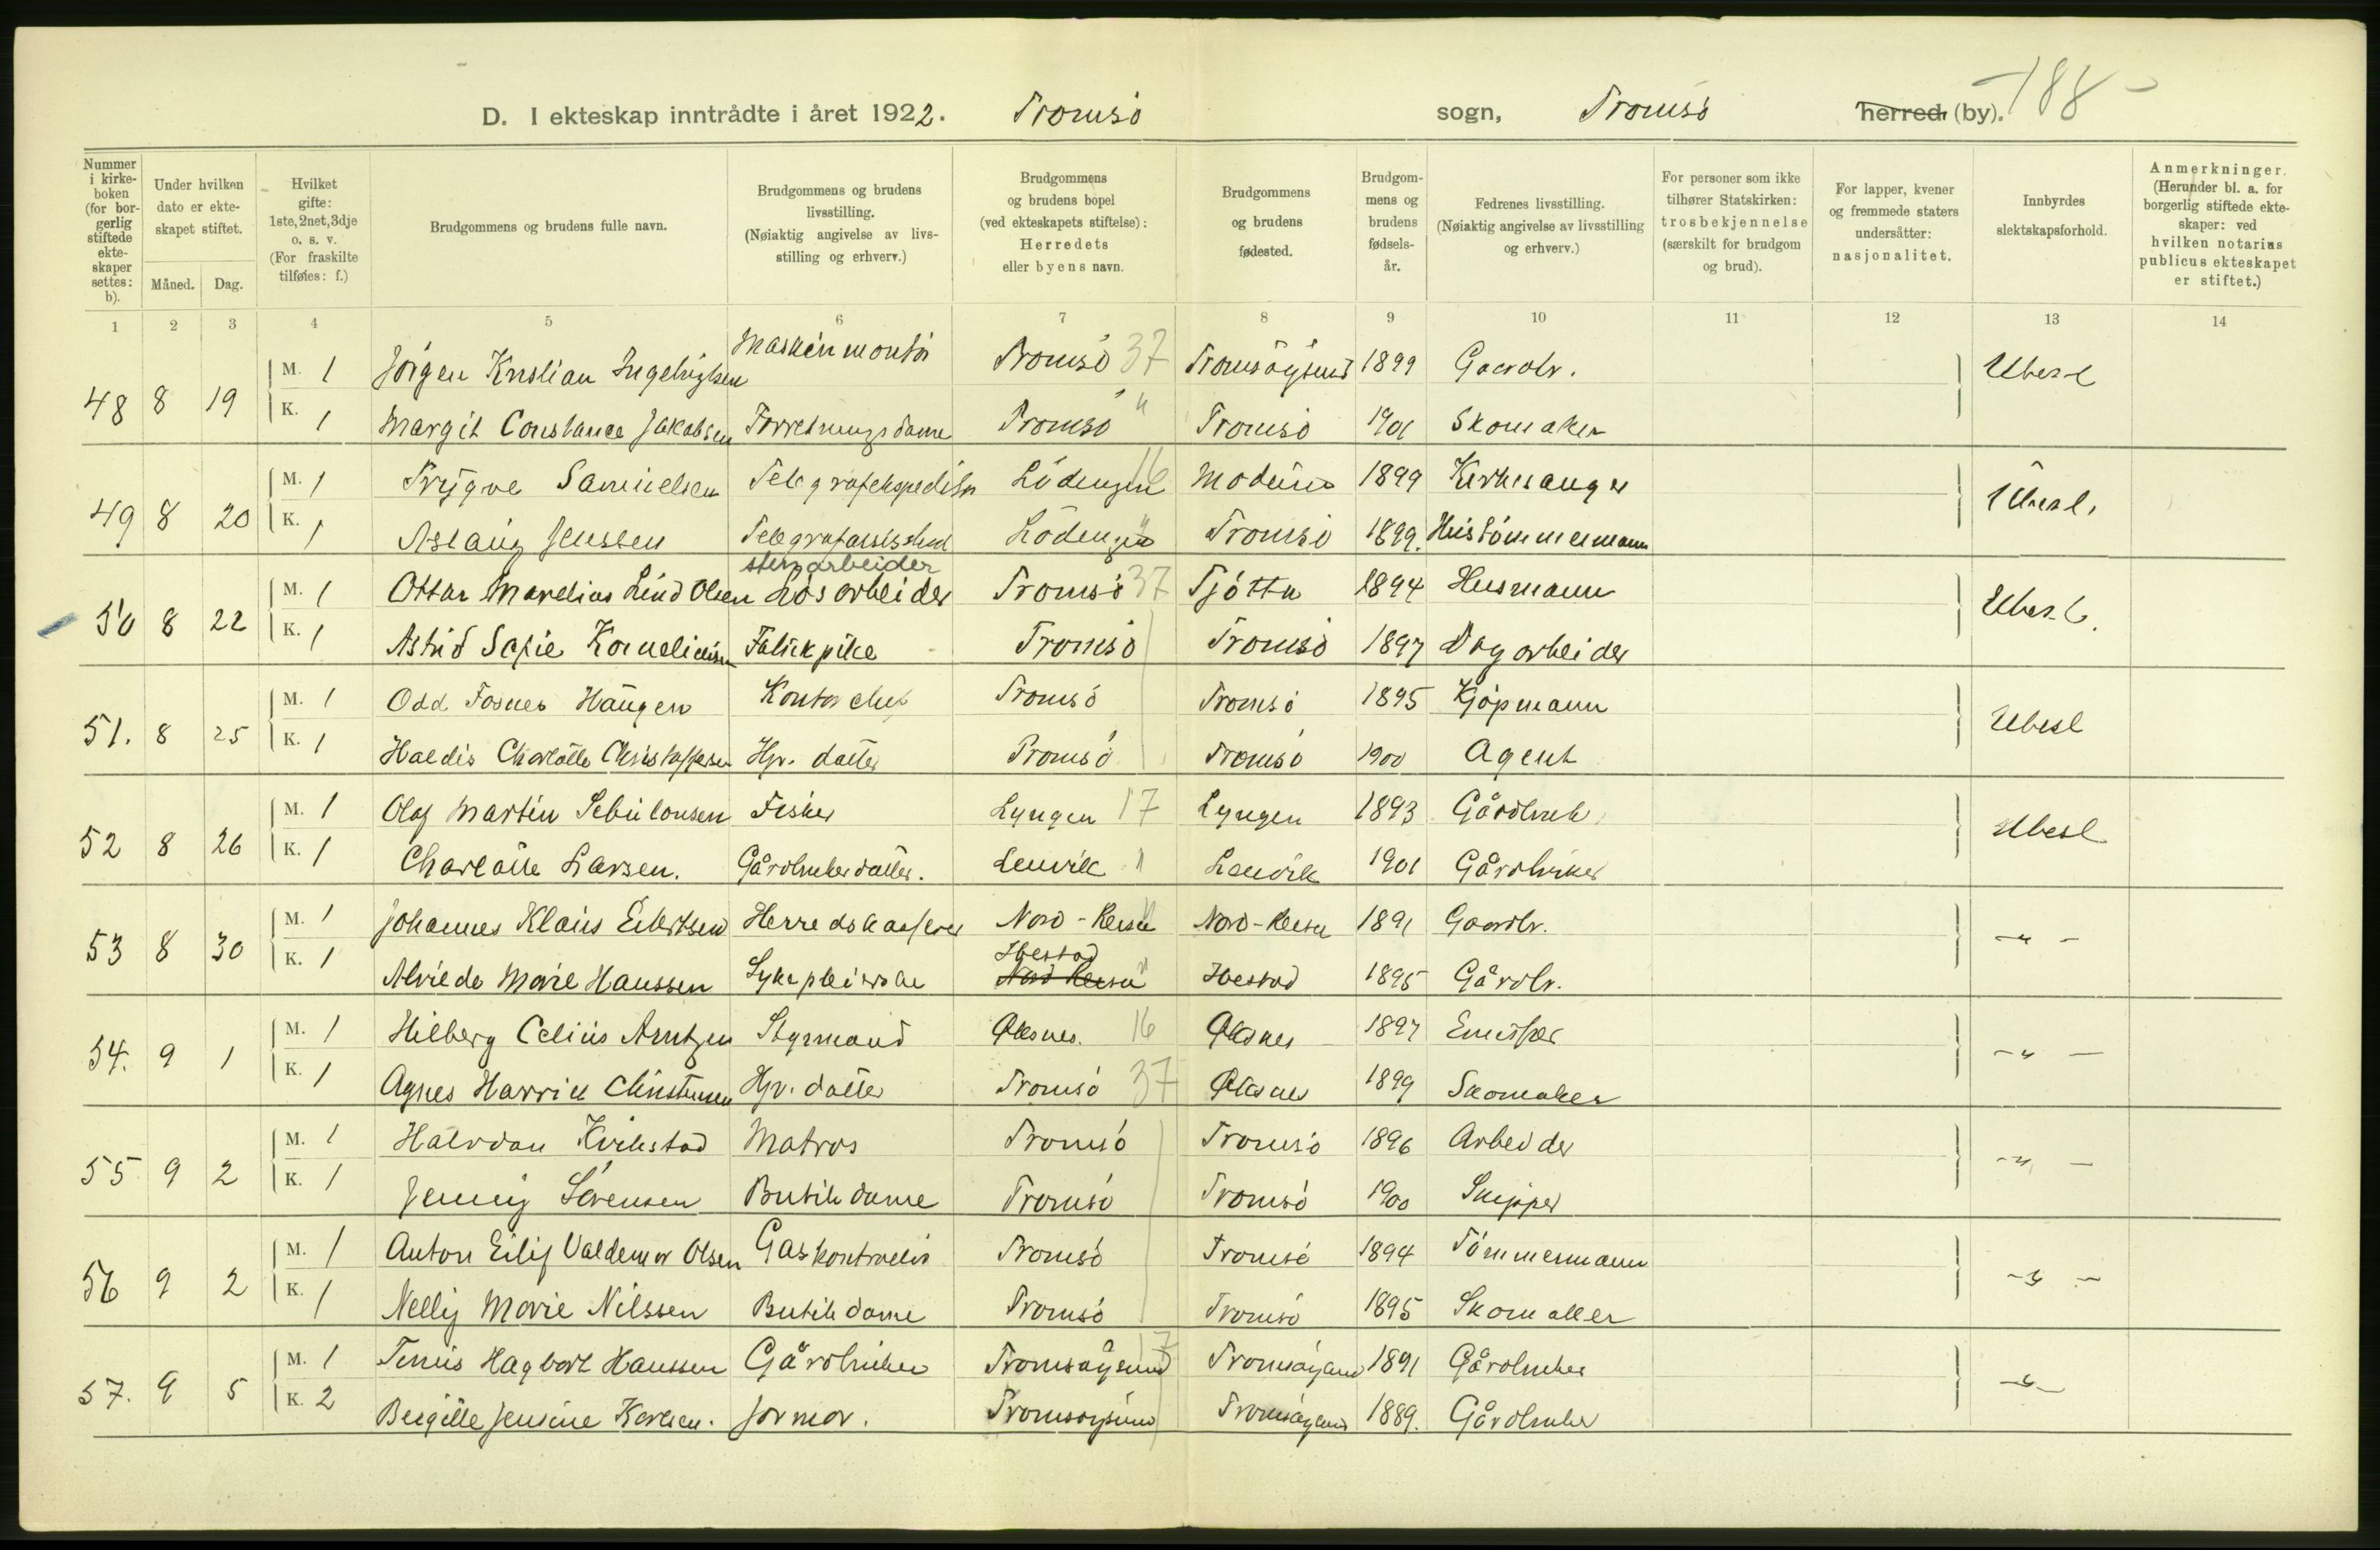 -188-
D. I ekteskap inntrådte i året 1922. Tromsö sogn, Tromsö herred (by).
Nummer i kirkeboken (for borgerlig stiftede ekteskaper settes: b).
Under hvilken dato er ekteskapet stiftet.
Måned. Dag.
Hvilket gifte: 1ste, 2net, 3dje o. s. v. (For fraskilte tilføies: f.)
Brudgommens og brudens fulle navn.
Brudgommens og brudens livsstilling. (Nøiaktig angivelse av livsstilling og erhverv.)
Brudgommens og brudens bopel (ved ekteskapets stiftelse): Herredets eller byens navn.
Brudgommens og brudens fødested.
Brudgommens og brudens fødselsår.
Fedrenes livsstilling. (Nøiaktig angivelse av livsstilling og erhverv.)
For personer som ikke tilhører Statskirken: trosbekjennelse (særskilt for brudgom og brud).
For lapper, kvener og fremmede staters undersåtter: nasjonalitet.
Innbyrdes slektskapsforhold.
Anmerkninger. (Herunder bl. a. for borgerlig stiftede ekteskaper: ved hvilken notarius publicus ekteskapet er stiftet.)
1 2 3 4 5 6 7 8 9 10 11 12 13 14
48 8 19 M. 1 Jörgen Kristian Ingebrigtsen Maskinmontör Tromsö 37 Tromsöysund 1899 Gaardbr. Ubesl
K. 1 Margit Constance Jakobsen Forretningsdame Tromsö " Tromsö 1901 Skomaker
49 8 20 M. 1 Trygve Samuelsen Telegrafekspeditör Lödingen 16 1899 Kirkesanger Ubesl.
K. 1 Aslaug Jenssen Telegrafassistent Lödingen " Tromsö 1899. Hustömmermann
stenarbeider
50 8 22 M. 1 Ottar Marelius Lind Olsen Løsarbeider Tromsö 37 Tjötta 1894 Husmann Ubesl.
K. 1 Astrid Sofie Korneliusen Fabrikpike Tromsö Tromsö 1897 Dagarbeider
51. 8 25 M. 1 Odd Fosnes Haugen Kontorchef Tromsö Tromsö 1895 Kjöpmann Ubesl
K. 1 Haldis Charlotte Christoffersen Hjv. datter Tromsö Tromsö 1900 Agent
52 8 26 M. 1 Olaf Martin Sebulonsen Fisker Lyngen 17 Lyngen 1893 Gårdbruk. Ubesl
K. 1 Charlotte Larsen. Gårdbrukerdatter. Lenvik " Lenvik 1901 Gårdbruker
53 8 30 M. 1 Johannes Klaus Eilertsen Herredskasserer Nord-Reisa Nord-Reisa 1891 Gaardbr. -"-
Ibestad
K. 1 Alvilde Marie Hanssen Sykepleierske Nord Reisa " Ibestad 1895 Gårdbr.
54. 9 1 M. 1 Hilberg Celius Arntzen Styrmand Øksnes. 16 Øksnes 1897 Emissær -"-
K. 1 Agnes Harriet Christensen Hjv. datter Tromsö 37 Øksnes 1899 Skomaker
55 9 2 M. 1 Halvdan Kirkstad Matros Tromsö Tromsö 1896 Arbeider -"-
K. 1 Jenny Sörensen Butikdame Tromsö Tromsö 1900 Skipper
56 9 2 M. 1 Anton Eilif Valdemar Olsen Gaskontrollör Tromsö Tromsö 1894 Tömmermann -"-
K. 1 Nelly Marie Nilssen Butikdame Tromsö Tromsö 1895 Skomaker
57. 9 5 M. 1 Hagbart Hanssen Gårdbruker Tromsöysund 17 Tromsöysund 1891 Gårdbruker -"-
K. 2 Bergitte Jensine Karlsen. Jormor. Tromsöysund Tromsöysund 1889. Gårdbruker